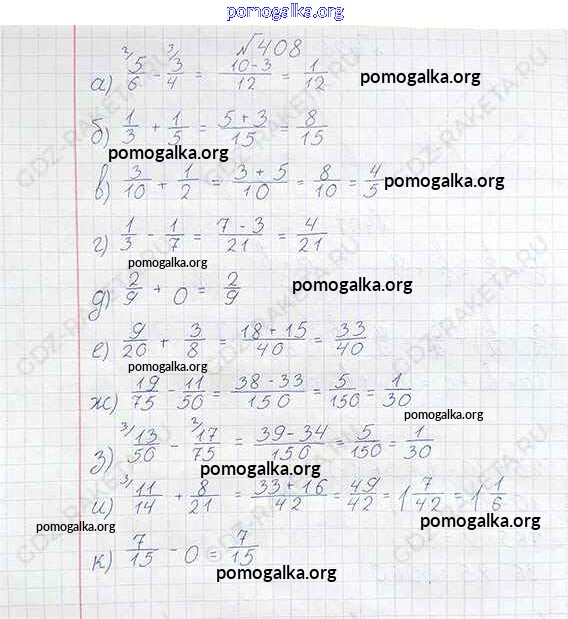 pomogalka.org
№408
а) ²5/6 - ³3/4 = (10-3)/12 = 1/12 pomogalka.org
б) 1/3 + 1/5 = (5+3)/15 = 8/15
pomogalka.org
в) 3/10 + 1/2 = (3+5)/10 = 8/10 = 4/5 pomogalka.org
г) 1/3 - 1/7 = (7-3)/21 = 4/21
pomogalka.org
д) 2/9 + 0 = 2/9 pomogalka.org
е) 9/20 + 3/8 = (18+15)/40 = 33/40
pomogalka.org
ж) 19/75 - 11/50 = (38-33)/150 = 5/150 = 1/30
pomogalka.org
з) ³13/50 - ²17/75 = (39-34)/150 = 5/150 = 1/30
pomogalka.org
и) ³11/14 + 8/21 = (33+16)/42 = 49/42 = 1 7/42 = 1 1/6
pomogalka.org pomogalka.org
к) 7/15 - 0 = 7/15
pomogalka.org
GDZ-RAKETA.RU